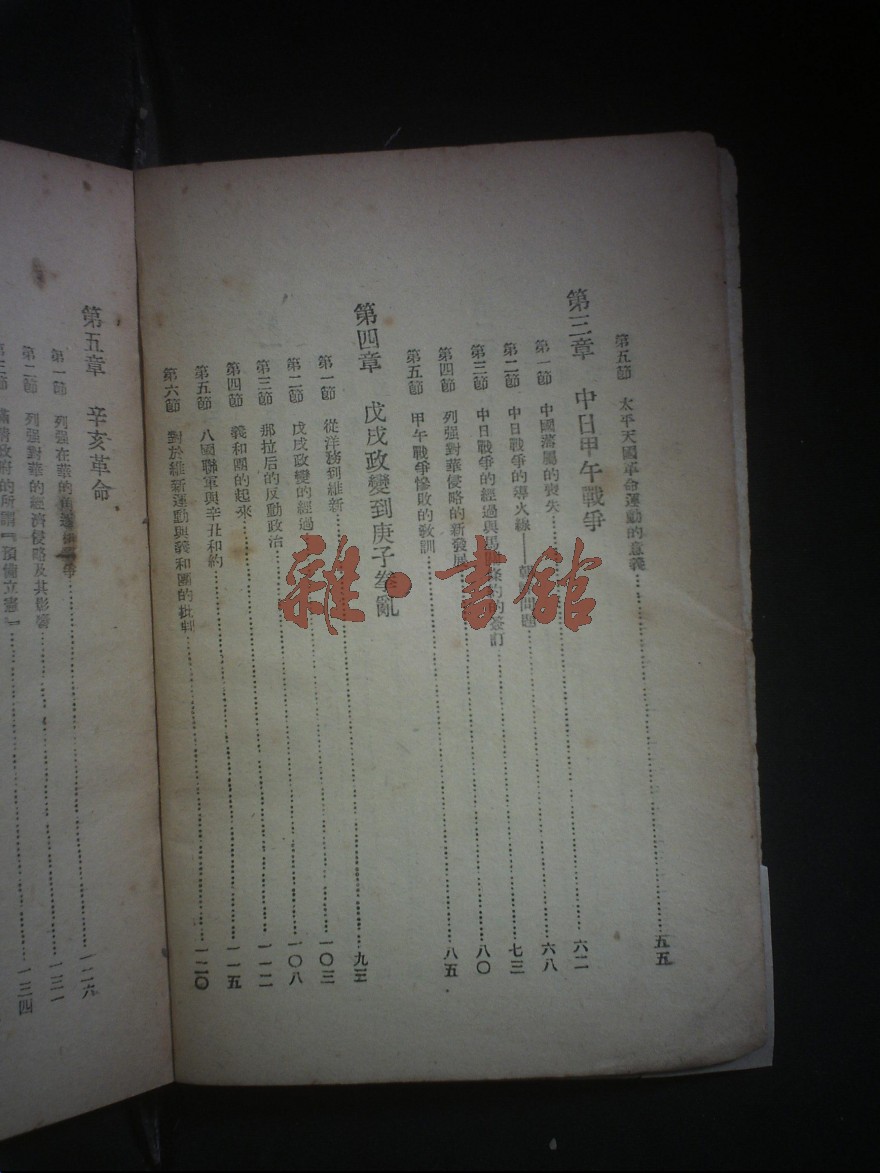 第五節 太平天國革命運動的意義……五五
第三章 中日甲午戰爭
第一節 中國藩屬的喪失……六二
第二節 中日戰爭的導火線——問題……六八
第三節 中日戰爭的經過與馬條約的簽訂……七三
第四節 列强對華侵略的新發展……八〇
第五節 甲午戰爭慘敗的教訓……八五
第四章 戊戌政變到庚子亂
第一節 從洋務到維新……九三
第二節 戊戌政變的經過……一〇三
第三節 那拉后的反動政治……一〇八
第四節 義和團的起來……一一二
第五節 八國聯軍與辛丑和約……一一五
第六節 對於維新運動與義和團的批判……一二〇
第五章 辛亥革命
第一節 列强在華的爭……一二六
第二節 列强對華的經濟侵略及其影響……一三一
第三節 滿清政府的所謂『預備立憲』……一三四
雜·書館